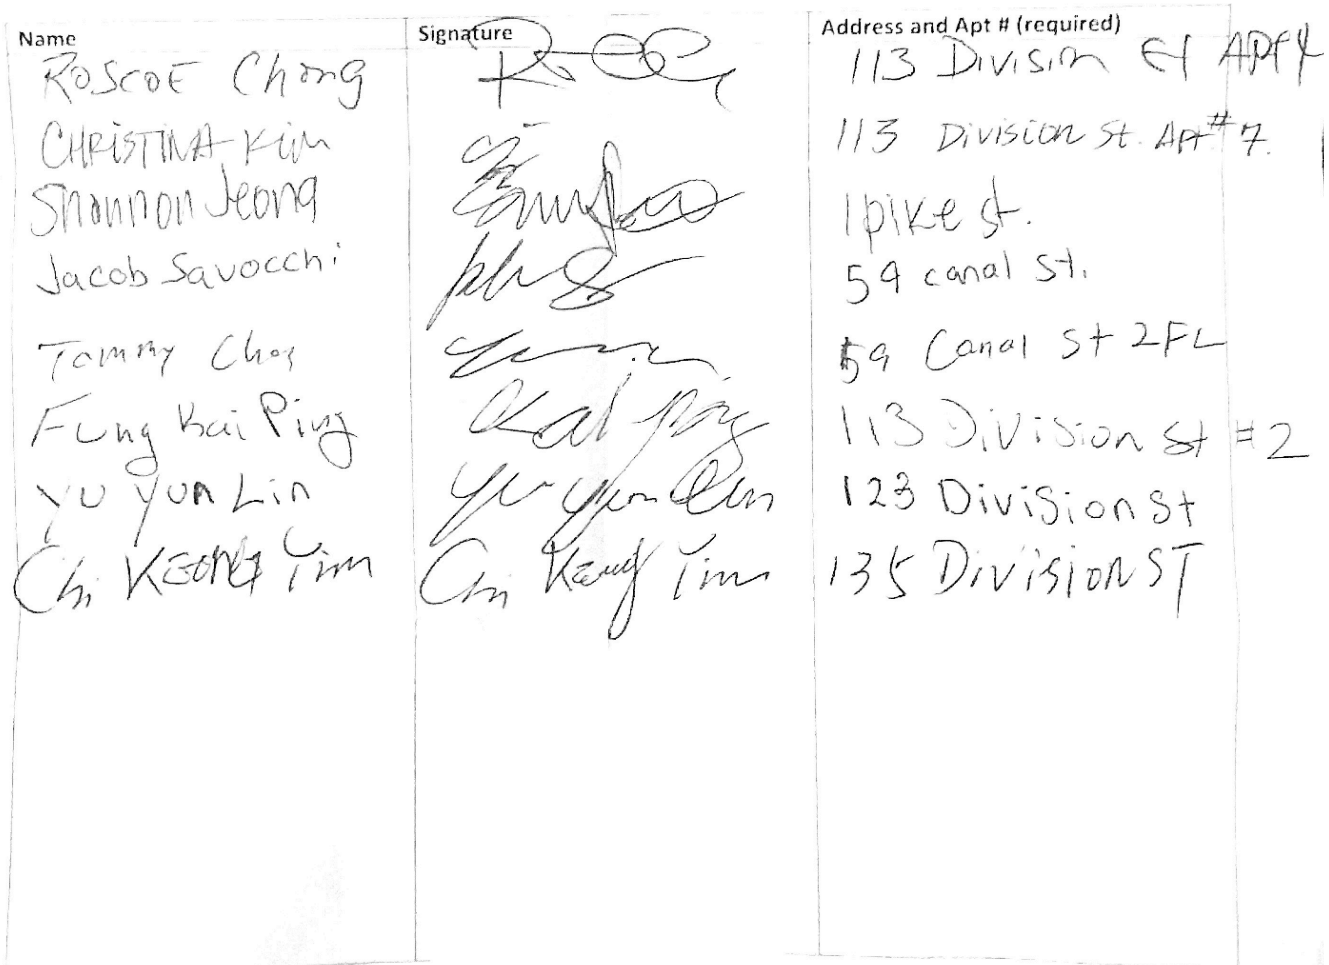 Name Signature Address and Apt # (required)
ROSCOE Chong 113 Division St APT 4
CHRISTINA KIM 113 Division St. Apt #7.
Shannon Jeong 1 pike st.
Jacob Savocchi 59 canal St.
Tammy 59 Canal St 2FL
Fung Kai Ping Kai Ping 113 Division St #2
Yu Yun Lin Yu Yun Lin 123 Division St
Chi KEONG Yim Chi Keong Yim 135 Division ST